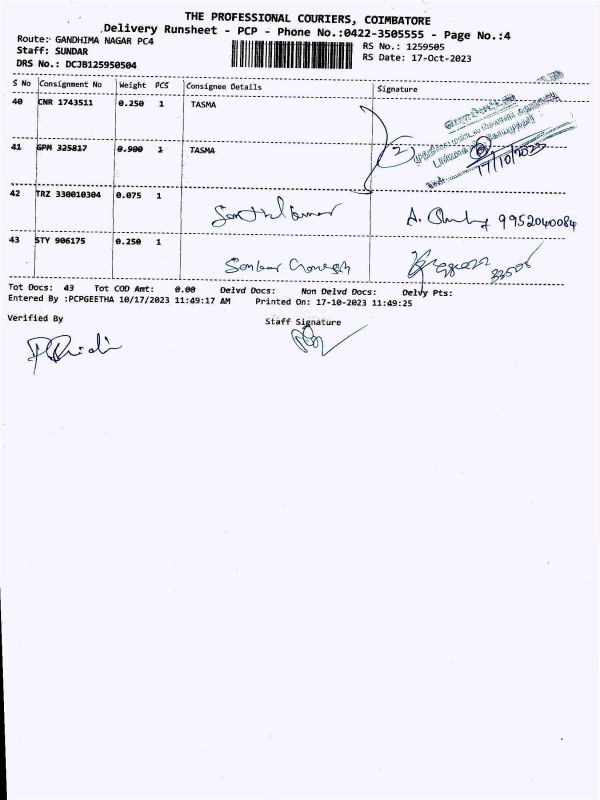 THE PROFESSIONAL COURIERS, COIMBATORE
Delivery Runsheet - PCP - Phone No.:0422-3505555 - Page No.:4
Route: GANDHIMA NAGAR PC4
RS No.: 1259505
Staff: SUNDAR
RS Date: 17-Oct-2023
DRS No.: DCJB125950504
S No Consignment No Weight PCS Consignee Details Signature
40 CNR 1743511 0.250 1 TASMA
41 GPM 325817 0.900 1 TASMA
2
17/10/2023
42 TRZ 330010304 0.075 1
9952040084
43 STY 906175 0.250 1
Tot Docs: 43 Tot COD Amt: 0.00 Delvd Docs: Non Delvd Docs: Delvy Pts:
Entered By :PCPGEETHA 10/17/2023 11:49:17 AM Printed On: 17-10-2023 11:49:25
Verified By
Staff Signature